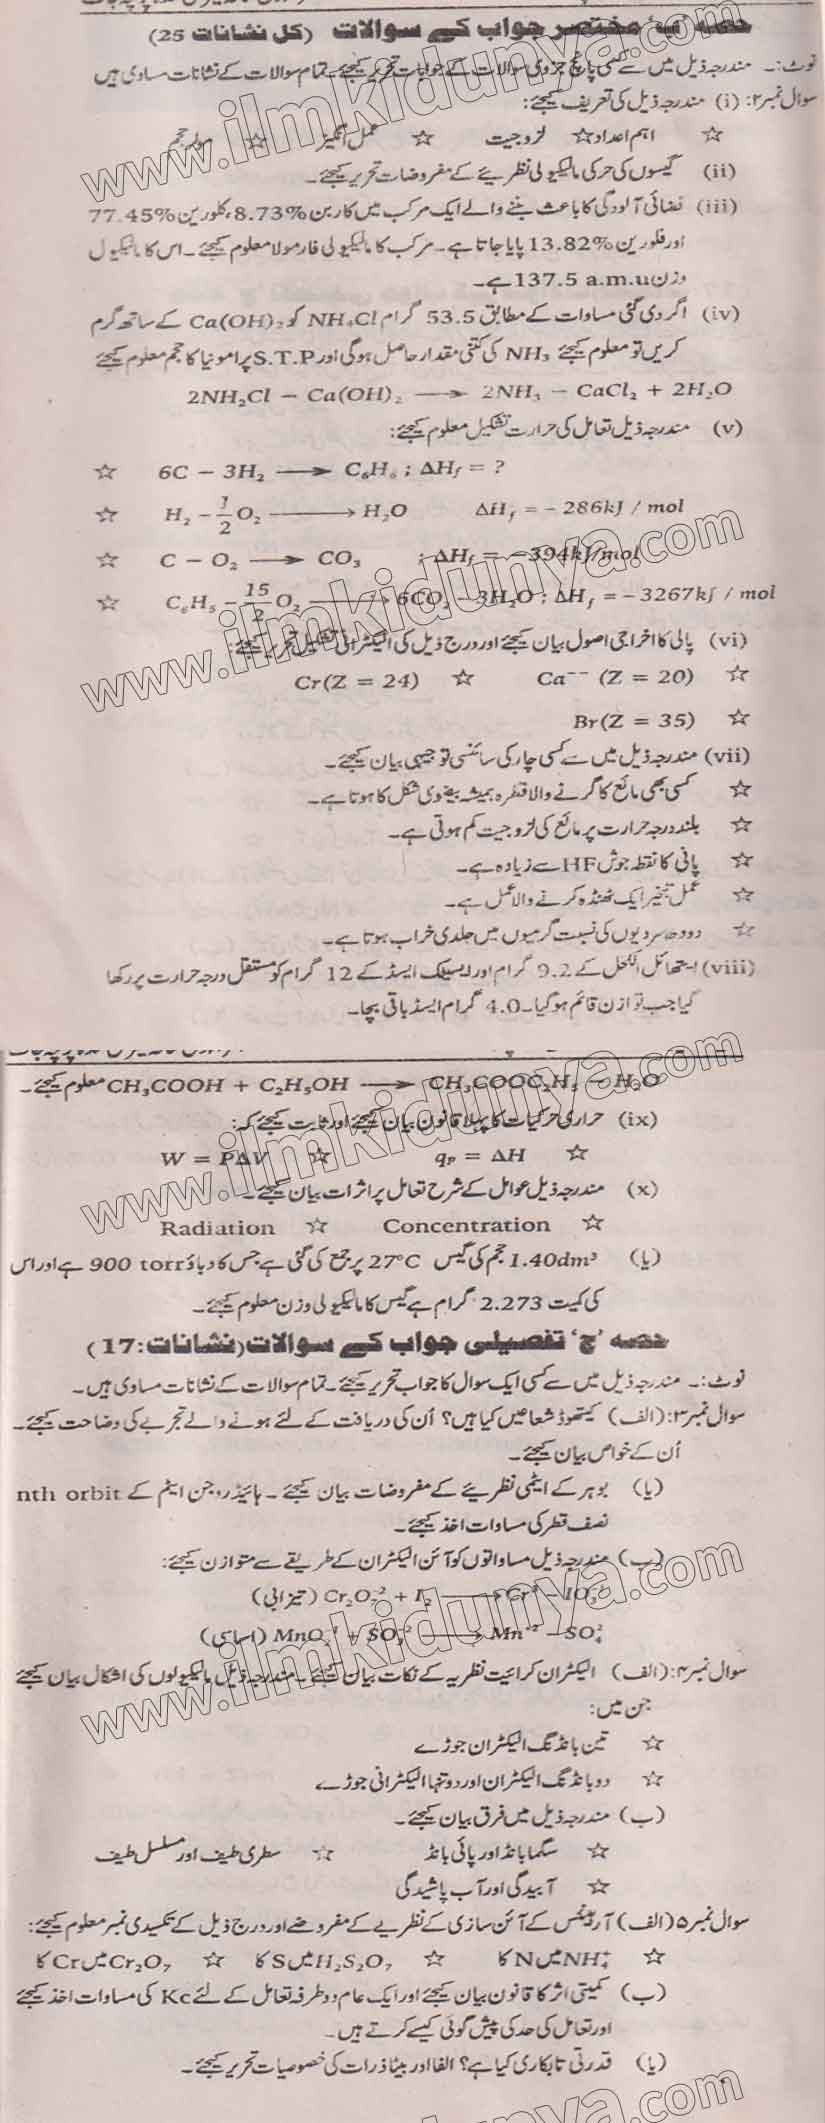 حصہ ’ب‘ مختصر جواب کے سوالات (کل نشانات 25)
نوٹ:۔ مندرجہ ذیل میں سے کسی پانچ جزوی سوالات کے جوابات تحریر کیجئے۔ تمام سوالات کے نشانات مساوی ہیں
سوال نمبر ۲: (i) مندرجہ ذیل کی تعریف کیجئے:
☆ اہم اعداد ☆ لزوجیت ☆ عمل انگیز ☆ مولر حجم
(ii) گیسوں کی حرکی مالیکیولی نظریئے کے مفروضات تحریر کیجئے۔
(iii) فضائی آلودگی کا باعث بننے والے ایک مرکب میں کاربن %8.73، کلورین %77.45
اور فلورین %13.82 پایا جاتا ہے۔ مرکب کا مالیکیولی فارمولا معلوم کیجئے۔ اس کا مالیکیول
وزن 137.5 a.m.u ہے۔
(iv) اگر دی گئی مساوات کے مطابق 53.5 گرام NH₄Cl کو Ca(OH)₂ کے ساتھ گرم
کریں تو معلوم کیجئے NH₃ کی کتنی مقدار حاصل ہوگی اور S.T.P پر امونیا کا حجم معلوم کیجئے
2NH₂Cl − Ca(OH)₂ ⟶ 2NH₃ − CaCl₂ + 2H₂O
(v) مندرجہ ذیل تعامل کی حرارت تشکیل معلوم کیجئے:
☆ 6C − 3H₂ ⟶ C₆H₆ ; ΔHf = ?
☆ H₂ − 1/2 O₂ ⟶ H₂O ΔHf = − 286kJ / mol
☆ C − O₂ ⟶ CO₃ ; ΔHf = −394kJ/mol
☆ C₆H₅ − 15/2 O₂ ⟶ 6CO₂ − 3H₂O ; ΔHf = −3267kJ / mol
(vi) پالی کا اخراجی اصول بیان کیجئے اور درج ذیل کی الیکٹرانی تشکیل تحریر کیجئے:
☆ Ca⁻⁻ (Z = 20) ☆ Cr(Z = 24)
☆ Br(Z = 35)
(vii) مندرجہ ذیل میں سے کسی چار کی سائنسی توجیہی بیان کیجئے۔
☆ کسی بھی مائع کا گرنے والا قطرہ ہمیشہ بیضوی شکل کا ہوتا ہے۔
☆ بلند درجہ حرارت پر مائع کی لزوجیت کم ہوتی ہے۔
☆ پانی کا نقطہ جوش HF سے زیادہ ہے۔
☆ عمل تبخیر ایک ٹھنڈہ کرنے والا عمل ہے۔
☆ دودھ سردیوں کی نسبت گرمیوں میں جلدی خراب ہوتا ہے۔
(viii) ایتھائل الکحل کے 9.2 گرام اور ایسیٹک ایسڈ کے 12 گرام کو مستقل درجہ حرارت پر رکھا
گیا جب توازن قائم ہوگیا۔ 4.0 گرام ایسڈ باقی بچا۔
CH₃COOH + C₂H₅OH ⟶ CH₃COOC₂H₅ − H₂O معلوم کیجئے۔
(ix) حراری حرکیات کا پہلا قانون بیان کیجئے اور ثابت کیجئے کہ:
☆ qₚ = ΔH ☆ W = PΔV
(x) مندرجہ ذیل عوامل کے شرح تعامل پر اثرات بیان کیجئے۔
☆ Concentration ☆ Radiation
(یا) 1.40dm³ حجم کی گیس 27°C پر جمع کی گئی ہے جس کا دباؤ 900 torr ہے اور اس
کی کمیت 2.273 گرام ہے گیس کا مالیکیولی وزن معلوم کیجئے۔
حصہ ’ج‘ تفصیلی جواب کے سوالات (نشانات: 17)
نوٹ:۔ مندرجہ ذیل میں سے کسی ایک سوال کا جواب تحریر کیجئے۔ تمام سوالات کے نشانات مساوی ہیں۔
سوال نمبر ۳: (الف) کیتھوڈ شعاعیں کیا ہیں؟ اُن کی دریافت کے لئے ہونے والے تجربے کی وضاحت کیجئے۔
اُن کے خواص بیان کیجئے۔
(یا) بوہر کے ایٹمی نظریئے کے مفروضات بیان کیجئے۔ ہائیڈروجن ایٹم کے nth orbit
نصف قطر کی مساوات اخذ کیجئے۔
(ب) مندرجہ ذیل مساواتوں کو آئن الیکٹران کے طریقے سے متوازن کیجئے:
Cr₂O₇⁻² + I₂ ⟶ Cr³ − IO₃⁻¹ (تیزابی)
MnO₄⁻¹ + SO₃⁻² ⟶ Mn⁺² − SO₄² (اساسی)
سوال نمبر ۴: (الف) الیکٹران گرائیت نظریہ کے نکات بیان کیجئے۔ مندرجہ ذیل مالیکیولوں کی اشکال بیان کیجئے
جن میں:
☆ تین بانڈنگ الیکٹران جوڑے
☆ دو بانڈنگ الیکٹران اور دو تنہا الیکٹرانی جوڑے
(ب) مندرجہ ذیل میں فرق بیان کیجئے۔
☆ سگما بانڈ اور پائی بانڈ ☆ سطری طیف اور مسلسل طیف
☆ آبیدگی اور آب پاشیدگی
سوال نمبر ۵ (الف) آرہینئس کے آئن سازی کے نظریے کے مفروضے اور درج ذیل کے تکسیدی نمبر معلوم کیجئے:
☆ NH₄⁺ میں N کا ☆ H₂S₂O₇ میں S کا ☆ Cr₂O₇ میں Cr کا
(ب) کمیتی اثر کا قانون بیان کیجئے اور ایک عام دو طرفہ تعامل کے لئے Kc کی مساوات اخذ کیجئے
اور تعامل کی حد کی پیش گوئی کیسے کرتے ہیں۔
(یا) قدرتی تابکاری کیا ہے؟ الفا اور بیٹا ذرات کی خصوصیات تحریر کیجئے۔
www.ilmkidunya.com
www.ilmkidunya.com
www.ilmkidunya.com
www.ilmkidunya.com